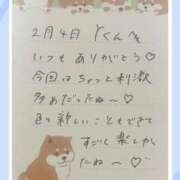 2月4日 Yくんへ
いつもありがとう♡
今回はちょっと刺激
多めだったね〜♡
色々新しいこともできて
すごく楽しかっ
たね〜♡